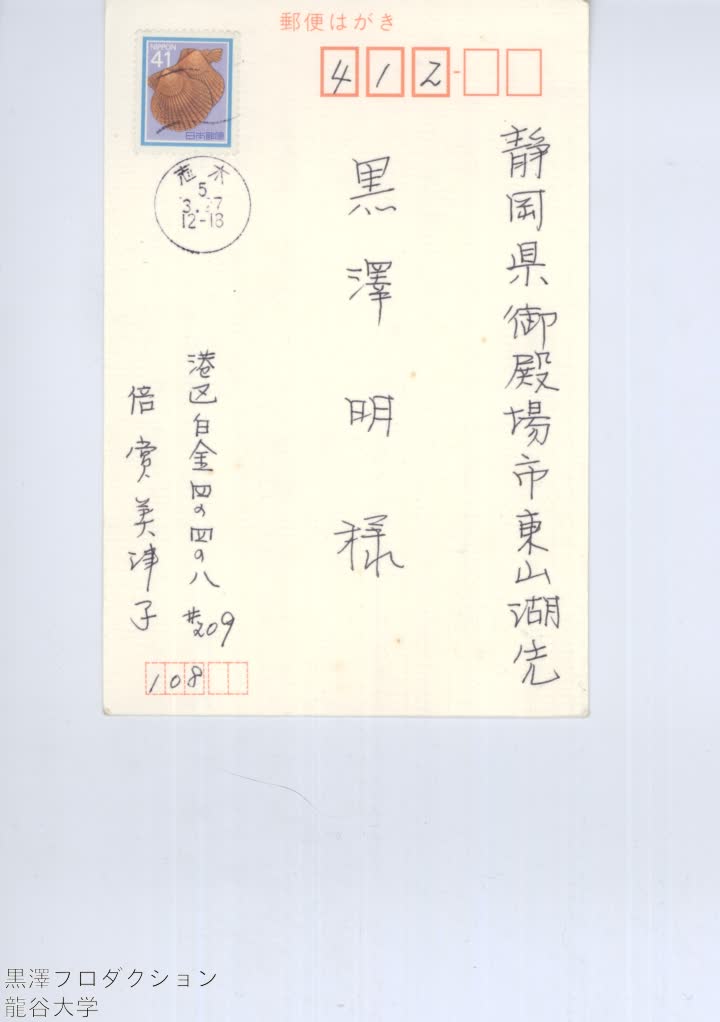 郵便はがき
NIPPON
41
日本郵便
5
12-18
412
静岡県御殿場市東山湖先
黒澤明様
港区白金四の四の八
#209
倍賞美津子
108
黒澤フロダクション
龍谷大学